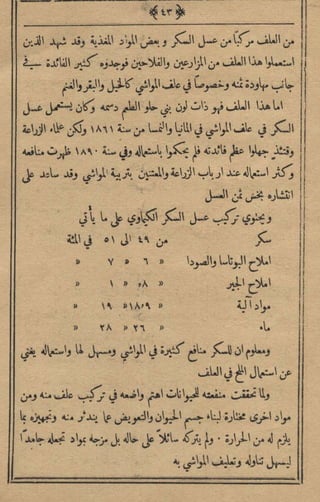 ﴿ ٤٣ ﴾
من العلف مركبًا من عسل السكر وبعض المواد المغذية وقد شهد الذين
استعملوا هذا العلف من المزارعين والفلاحين فوجدوه كثير الفائدة في
جانب مهاودة ثمنه وخصوصًا في علف المواشي كالخيل والبقر والغنم
اما هذا العلف فهو ذات لون بني حلو الطعم دسمه وكان يستعمل عسل
السكر في علف المواشي في المانيا والنمسا من سنة ١٨٦١ ولكن علماء الزراعة
وقتئذٍ جهلوا عظم فائدته فلم يحكموا باستعماله وفي سنة ١٨٩٠ ظهرت منافعه
وكثر استعماله عند ارباب الزراعة والمعتنين بتربية المواشي وقد ساعد على
انتشاره بخس ثمن العسل
ويحتوي تركيب عسل السكر الكيماوي على ما يأتي
سكر من ٤٩ الى ٥١ في المئة
املاح البوتاسا والصودا « ٦ « ٧ «
املاح الجير « ٥٨، « ١ «
مواد آلية « ١٨،٥٩ « ١٩ «
ماء « ٢٦ « ٢٨ «
ومعلوم ان للسكر منافع كثيرة في المواشي ومسهل لها واستعماله يغني
عن استعمال الملح في العلف
ولما تحققت منفعته للحيوانات اهتم واضعه في تركيب علف منه ومن
مواد اخرى مختارة لبناء جسم الحيوان والتعويض عما يندثر منه وتجهيزه بما
يلزم له من الحرارة . ولم يتركه سائلاً على حاله بل مزجه بمواد تجعله جامدًا
ليسهل تناوله وتعليف المواشي به